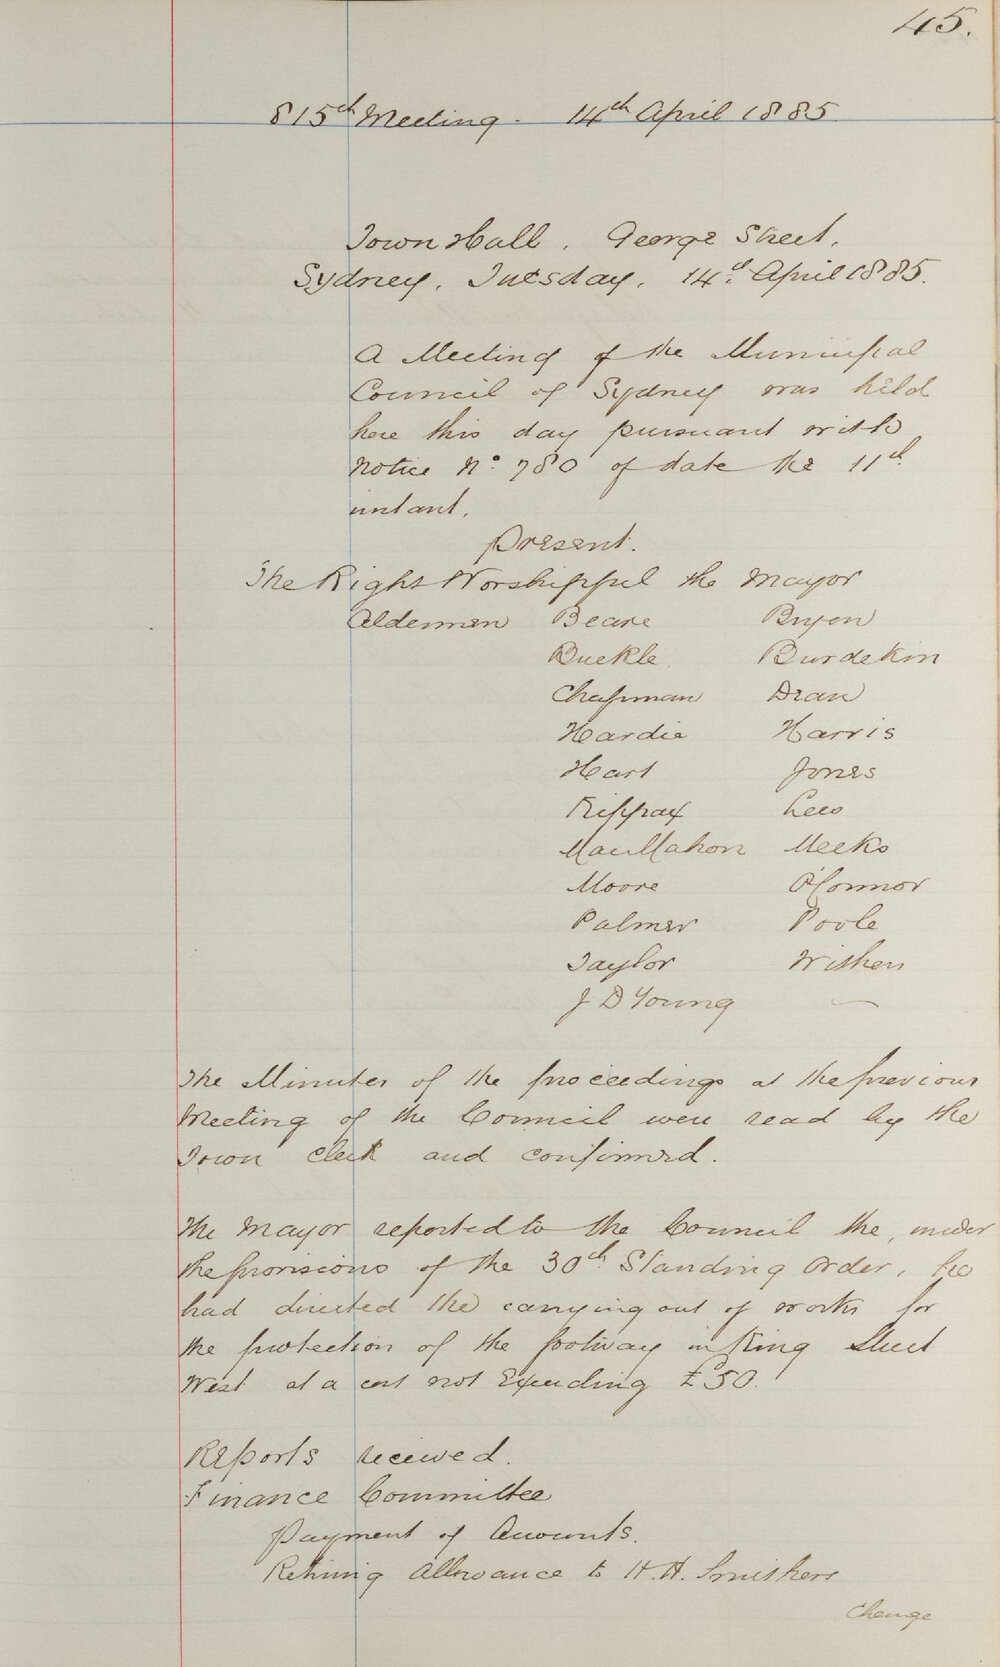 45.
815th Meeting. 14th April 1885
Town Hall, George Street,
Sydney, Tuesday, 14th April 1885.
A Meeting of the Municipal
Council of Sydney was held
here this day pursuant with
notice No. 780 of date the 11th
instant.
Present.
The Right Worshipful the Mayor
Aldermen Beare Bryen
Buckle Burdekin
Chapman Dean
Hardie Harris
Hart Jones
Kippax Lees
MacMahon Meeks
Moore O'Connor
Palmer Poole
Taylor Withers
J D Young —
The Minutes of the proceedings at the previous
Meeting of the Council were read by the
Town Clerk and confirmed.
The Mayor reported to the Council the, under
the provisions of the 30th Standing Order, he
had directed the carrying out of works for
the protection of the footway in King Street
West at a cost not Exceeding £50.
Reports received.
Finance Committee
Payment of Accounts.
Retiring Allowance to H. H.